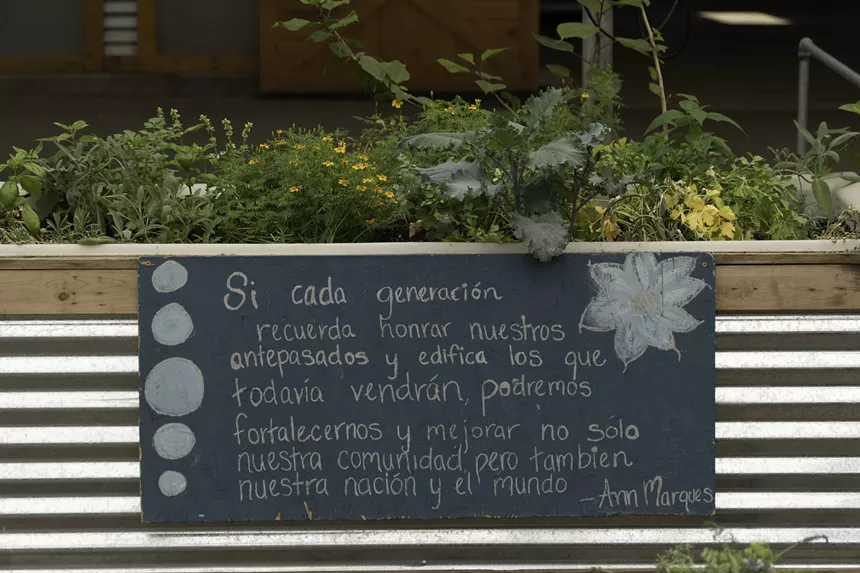 Si cada generación
recuerda honrar nuestros
antepasados y edifica los que
todavía vendrán, podremos
fortalecernos y mejorar no sólo
nuestra comunidad, pero tambien
nuestra nación y el mundo
- Ann Marques